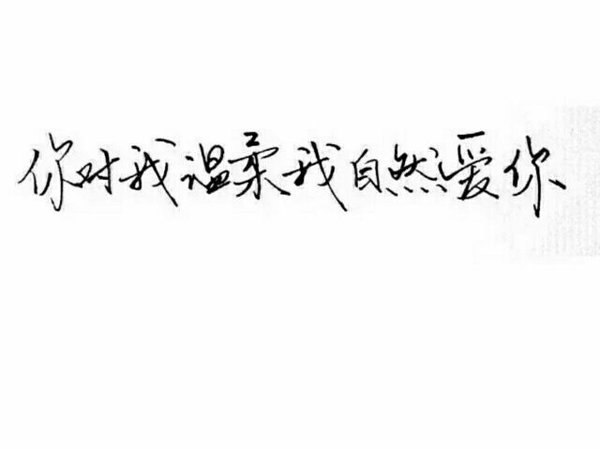 你对我温柔我自然爱你